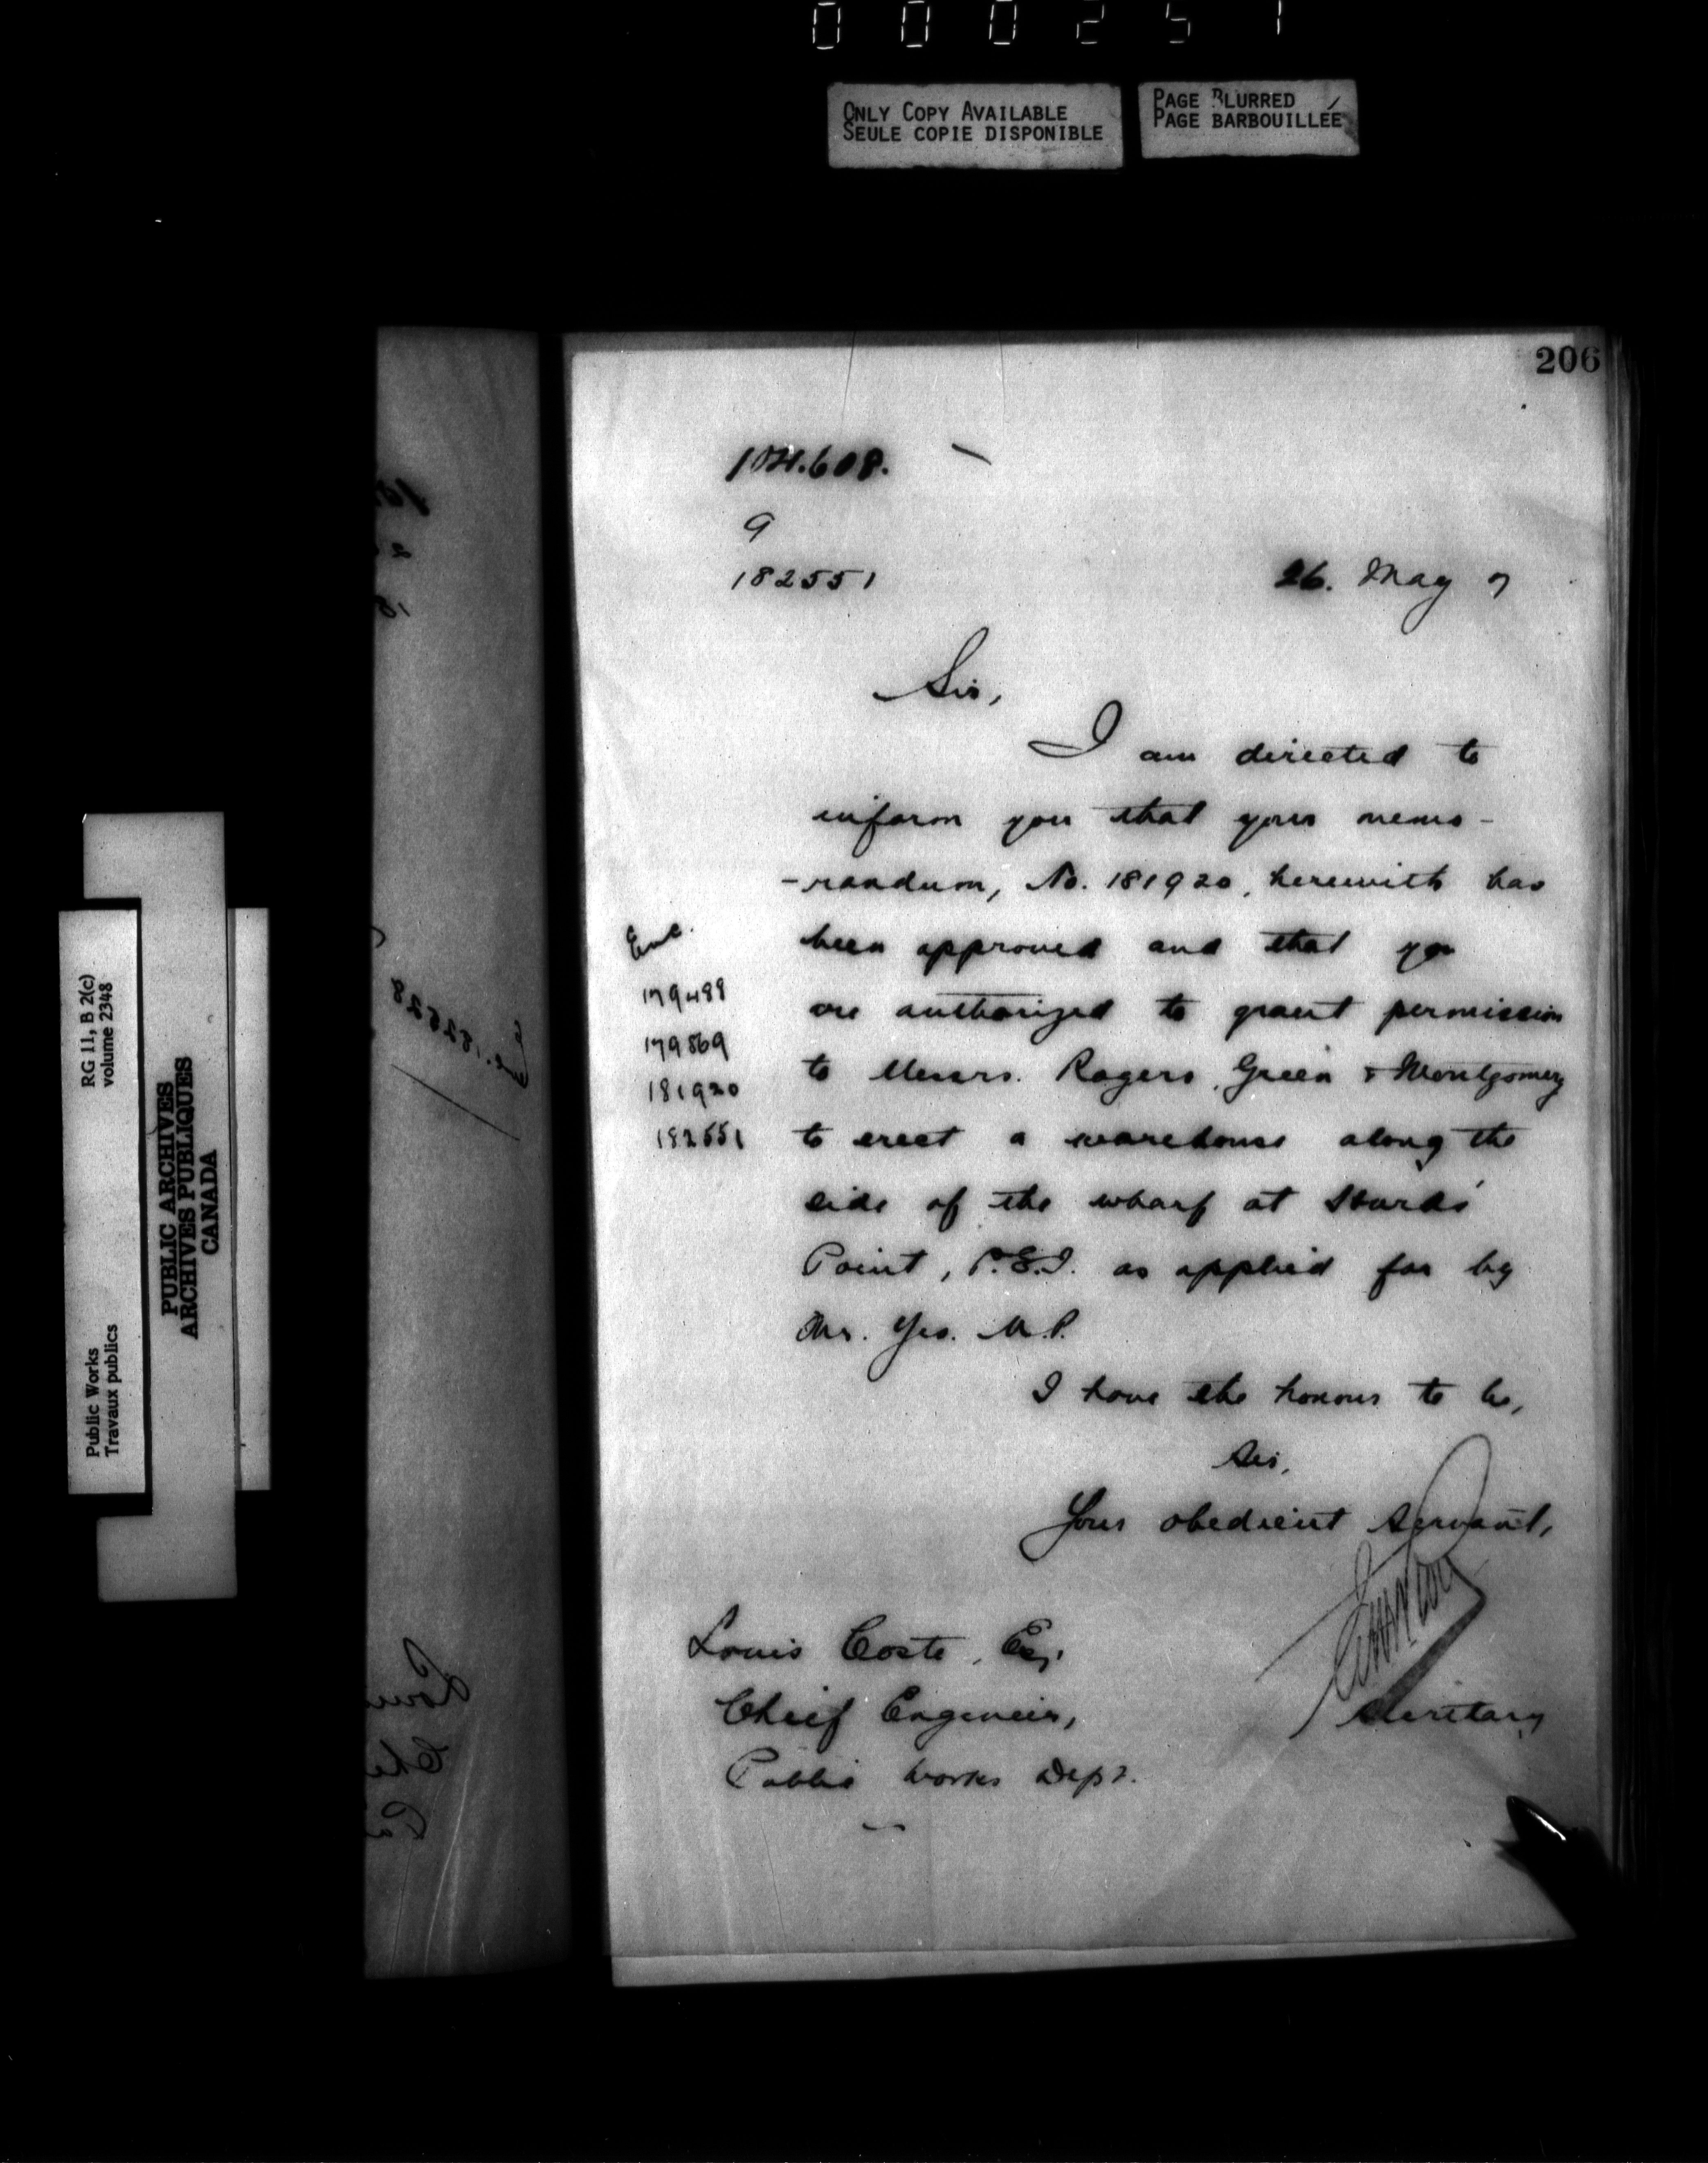 000251
ONLY COPY AVAILABLE
SEULE COPIE DISPONIBLE
PAGE BLURRED
PAGE BARBOUILLÉE
206
608.
9
182551
26. May 7
Sir,
I am directed to
inform you that your memo-
-randum, No. 181920, herewith has
been approved and that you
are authorized to grant permission
to Messrs. Rogers, Green & Montgomery
to erect a warehouse along the
side of the wharf at Hurds'
Point, P.E.I. as applied for by
Mr. Yeo. M.P.
Enc.
179488
179569
181920
182551
I have the honour to be,
Sir,
Your obedient Servant,
Secretary
Louis Coste, Esq.
Chief Engineer,
Public Works Dept.
Enc. 182528
Loui
Che
RG 11, B 2(c)
volume 2348
Public Works
Travaux publics
PUBLIC ARCHIVES
ARCHIVES PUBLIQUES
CANADA